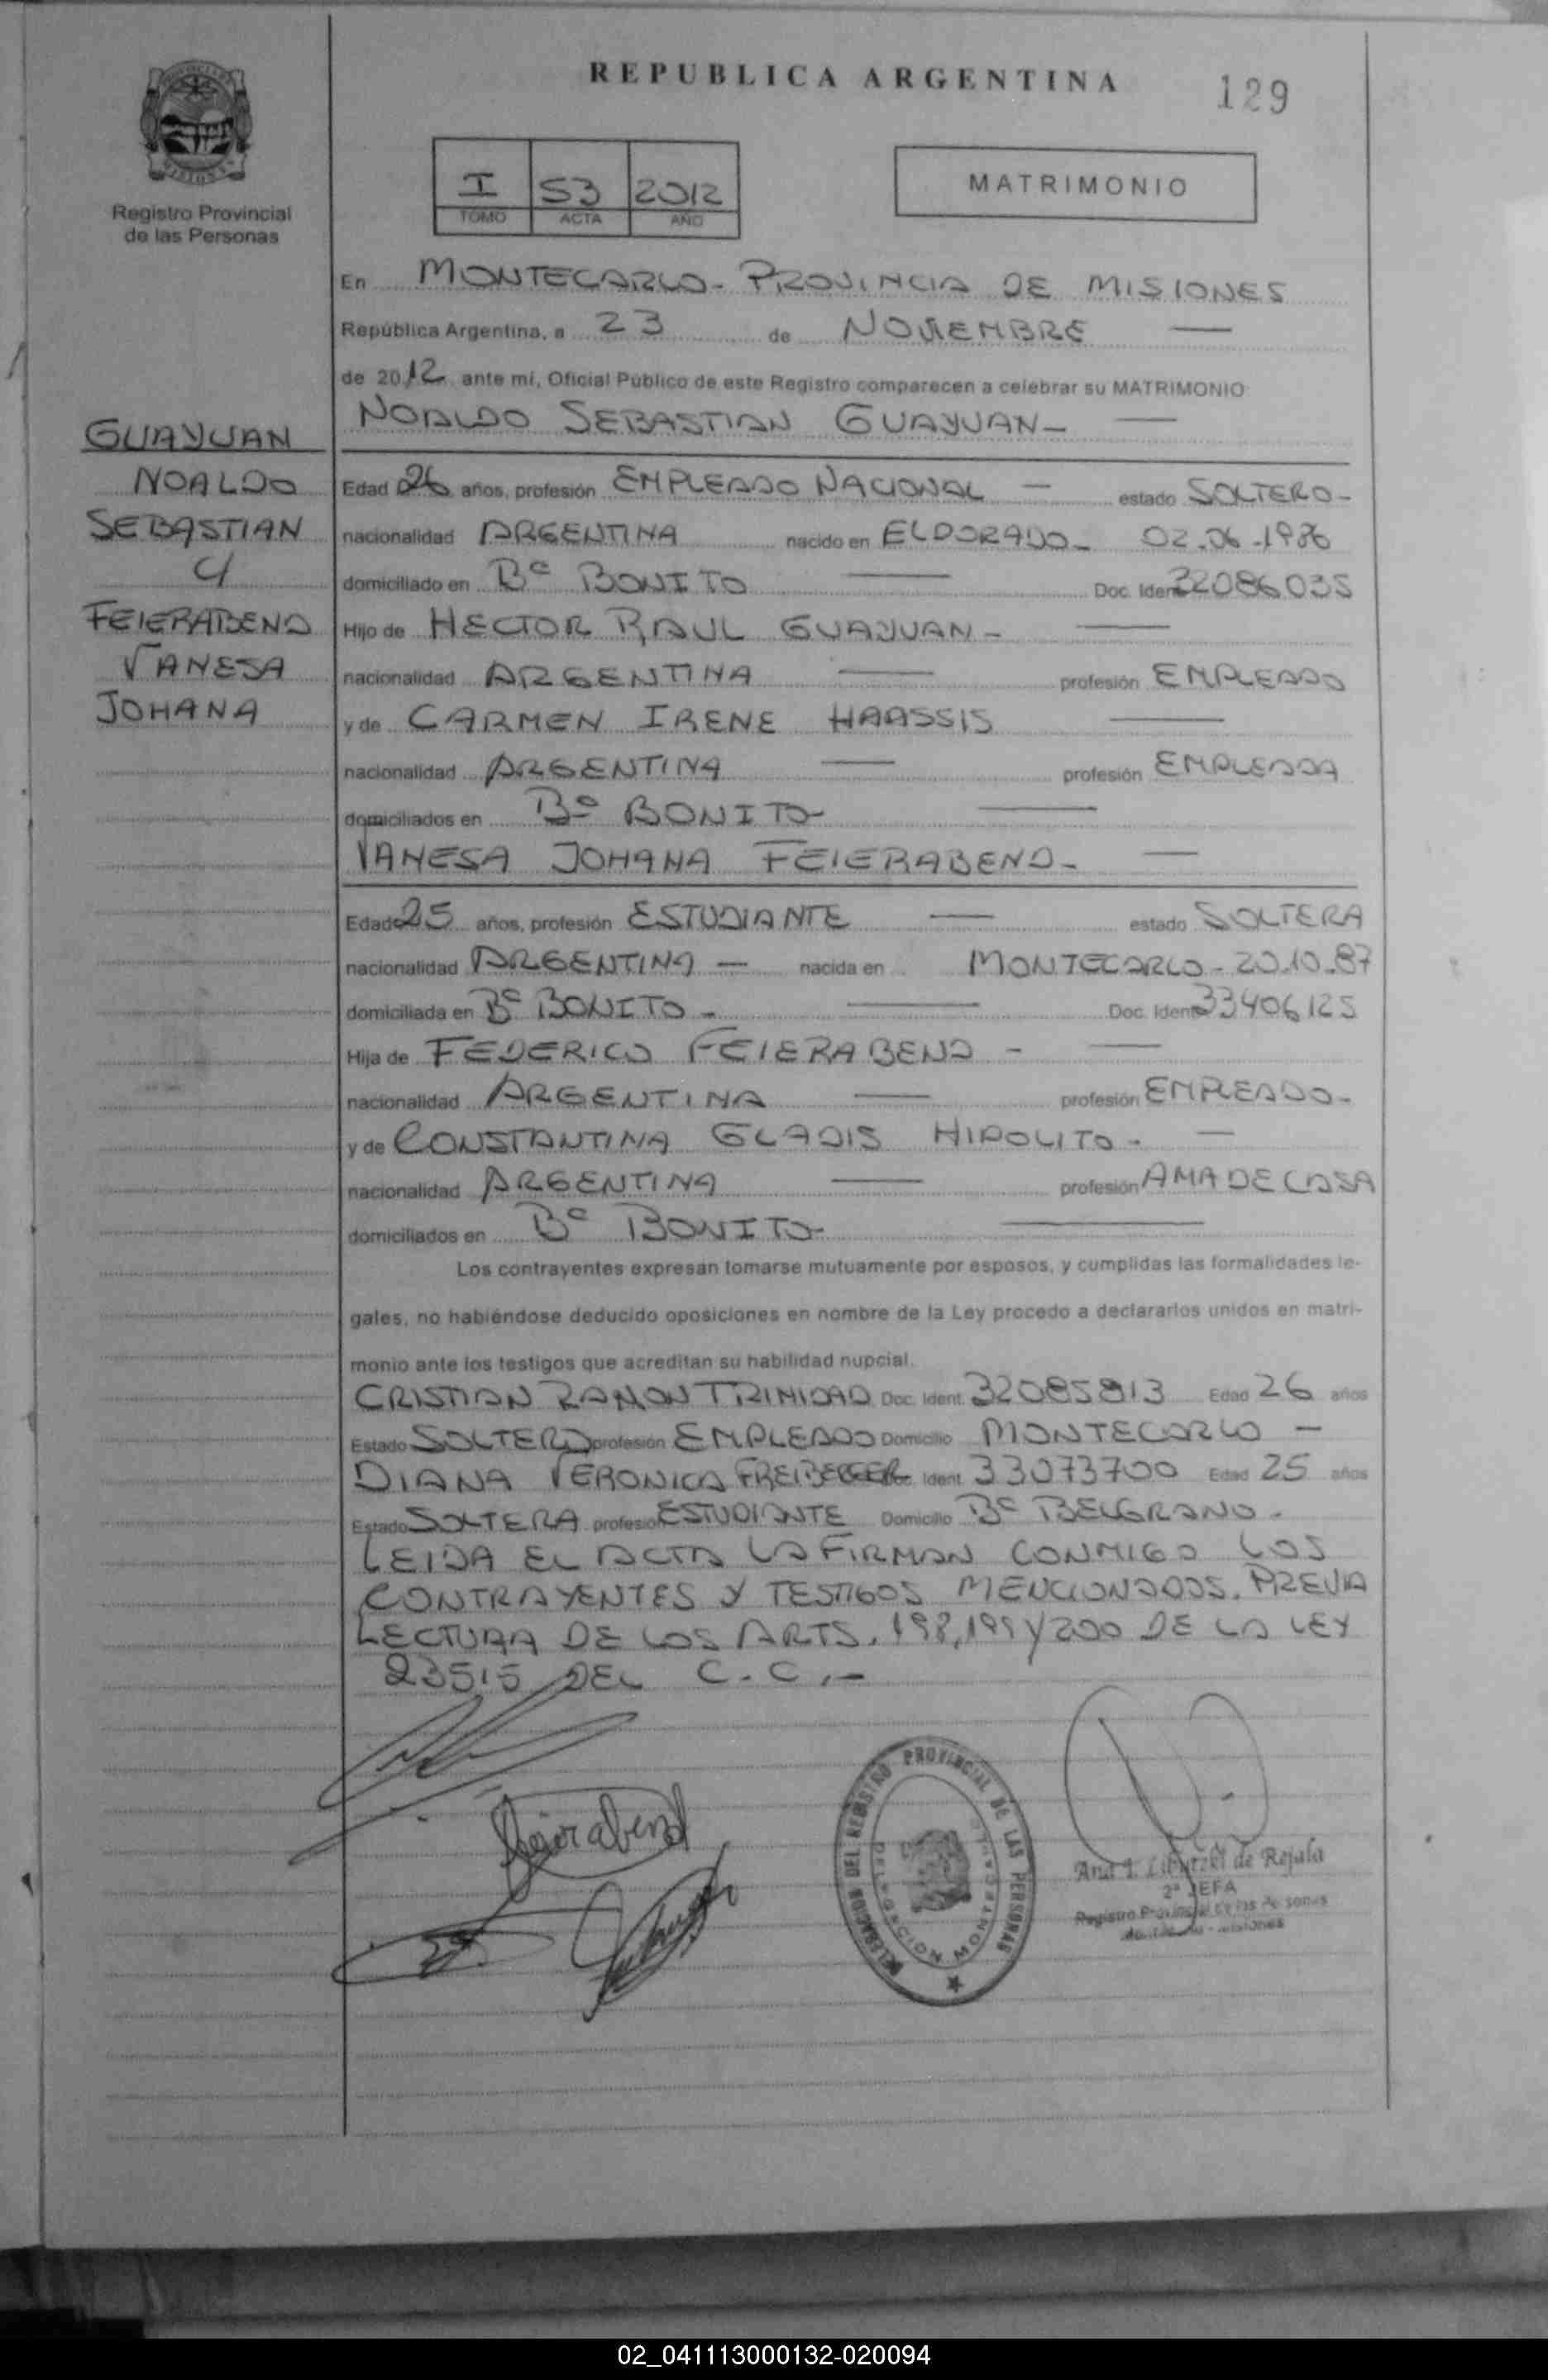 REPUBLICA ARGENTINA
129
Registro Provincial
de las Personas
I 53 2012
TOMO ACTA AÑO
MATRIMONIO
En MONTECARLO - PROVINCIA DE MISIONES
República Argentina, a 23 de NOVIEMBRE
de 2012 ante mí, Oficial Público de este Registro comparecen a celebrar su MATRIMONIO
NOALDO SEBASTIAN GUAYUAN -
GUAYUAN
NOALDO
SEBASTIAN
Y
FEIERABEND
VANESA
JOHANA
Edad 26 años, profesión EMPLEADO NACIONAL - estado SOLTERO -
nacionalidad ARGENTINA nacido en ELDORADO - 02.06.1986
domiciliado en Bº BONITO Doc. Ident. 32086035
Hijo de HECTOR RAUL GUAYUAN -
nacionalidad ARGENTINA profesión EMPLEADO
y de CARMEN IRENE HAASSIS
nacionalidad ARGENTINA profesión EMPLEADA
domiciliados en Bº BONITO -
VANESA JOHANA FEIERABEND -
Edad 25 años, profesión ESTUDIANTE estado SOLTERA
nacionalidad ARGENTINA - nacida en MONTECARLO - 20.10.87
domiciliada en Bº BONITO - Doc. Ident. 33406125
Hija de FEDERICO FEIERABEND -
nacionalidad ARGENTINA profesión EMPLEADO -
y de CONSTANTINA GLADIS HIPOLITO -
nacionalidad ARGENTINA profesión AMA DE CASA
domiciliados en Bº BONITO -
Los contrayentes expresan tomarse mutuamente por esposos, y cumplidas las formalidades le-
gales, no habiéndose deducido oposiciones en nombre de la Ley procedo a declararlos unidos en matri-
monio ante los testigos que acreditan su habilidad nupcial.
CRISTIAN RAMON TRINIDAD Doc. Ident. 32085813 Edad 26 años
Estado SOLTERO profesión EMPLEADO Domicilio MONTECARLO -
DIANA VERONICA FREIBERGER Doc. Ident. 33073700 Edad 25 años
Estado SOLTERA profesión ESTUDIANTE Domicilio Bº BELGRANO -
LEIDA EL ACTA LA FIRMAN CONMIGO LOS
CONTRAYENTES Y TESTIGOS MENCIONADOS. PREVIA
LECTURA DE LOS ARTS. 198, 199 Y 200 DE LA LEY
23515 DEL C.C.-
Feierabend
DELEGACION DEL REGISTRO PROVINCIAL DE LAS PERSONAS
DELEGACION MONTECARLO
Ana de Rejala
2ª JEFA
Registro Provincial de las Personas
02_041113000132-020094